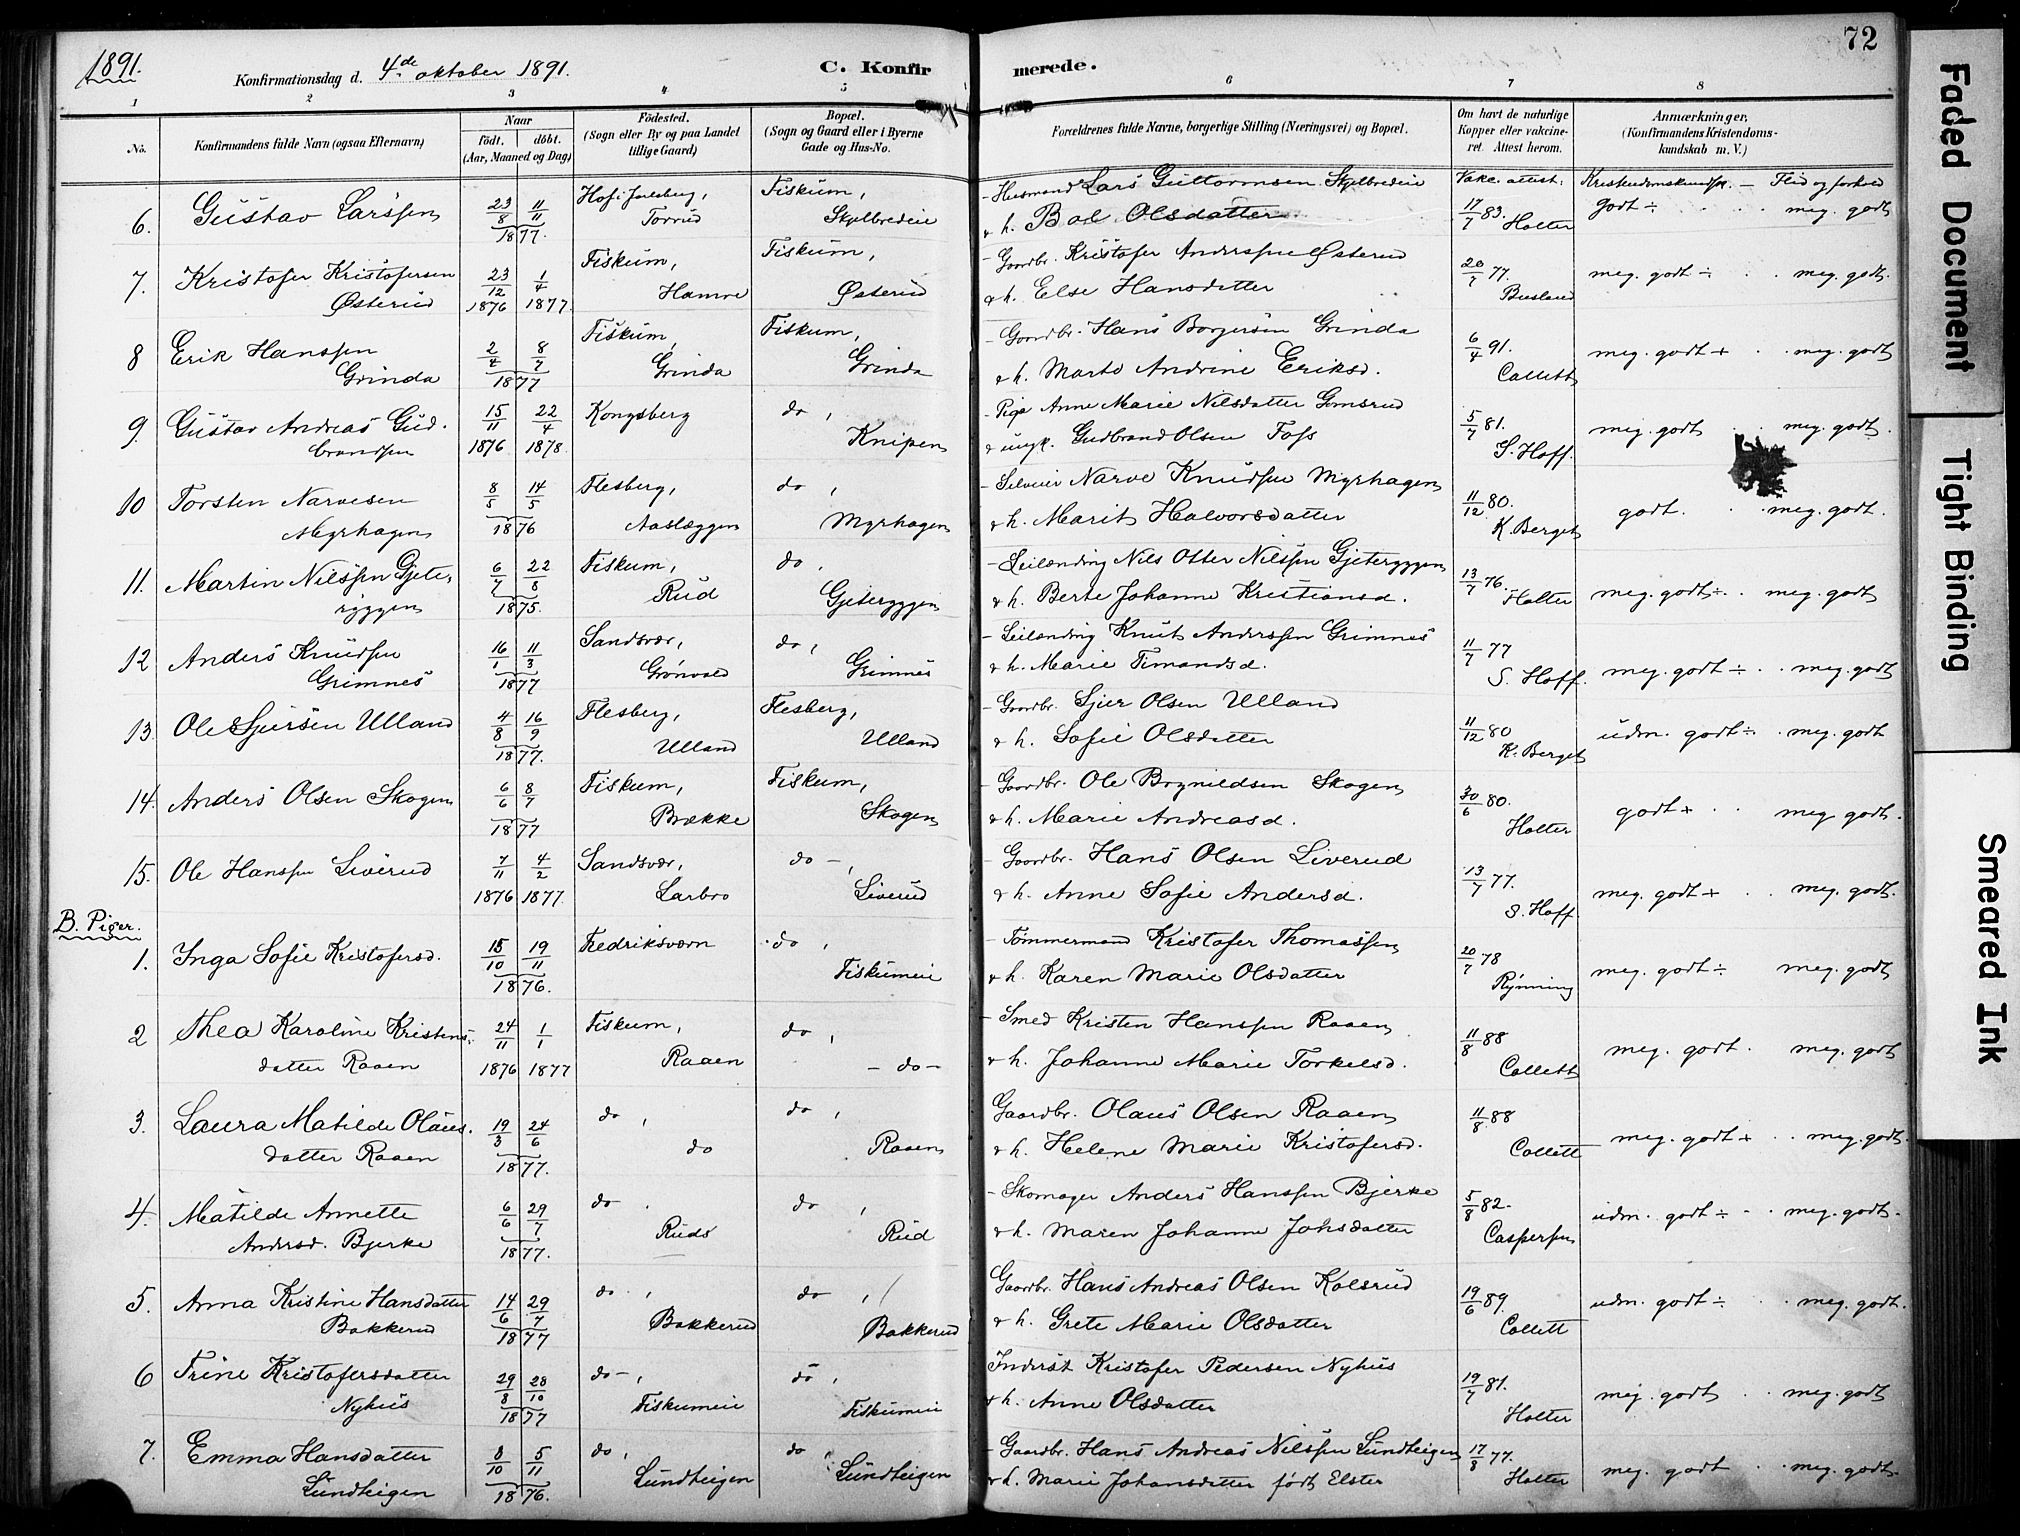 1891.
Konfirmationsdag d. 4de oktober 1891.
C. Konfirmerede.
72
1 2 3 4 5 6 7 8
No.
Konfirmandens fulde Navn (ogsaa Efternavn)
Naar
födt. döbt.
(Aar, Maaned og Dag)
Födested.
(Sogn eller By og paa Landet
tillige Gaard)
Bopæl.
(Sogn og Gaard eller i Byerne
Gade og Hus-No.
Forældrenes fulde Navne, borgerlige Stilling (Næringsvei) og Bopæl.
Om havt de naturlige
Kopper eller vaccine-
ret. Attest herom.
Anmærkninger.
(Konfirmandens Kristendoms-
kundskab m. V.)
Vakc. attest. Kristendomskundsk. — Flid og forhold
6. Gustav Larssen 23/8 11/11 1877. Hof i Jarlsberg, Torrud Fiskum, Skjelbredeie
- Husmand Lars Guttormsen Skjelbredeie
& h. Bol Olsdatter. 17/7 83. Holter godt ÷ meg. godt
7. Kristofer Kristofersen Østerud 23/12 1876 1/4 1877. Fiskum, Hamre Fiskum, Østerud
- Gaardbr. Kristofer Anderssen Østerud
& h. Else Hansdatter 20/7 77. Busland meg. godt ÷ meg. godt.
8 Erik Hanssen Grinda 2/4 8/7 1877 Fiskum, Grinda Fiskum, Grinda
- Gaardbr. Hans Borgersen Grinda
& h. Marte Andrine Eriksd. 6/4 91. Collett meg. godt + meg. godt
9. Gustav Andreas Gudbrandsen 15/11 1876 22/4 1878. Kongsberg do, Knipen
- Pige Anne Marie Nilsdatter Gomsrud
& ungk. Gudbrand Olsen Foss 5/7 81. S. Hoff. meg. godt meg. godt.
10 Torsten Narvesen Myrhagen 8/5 14/5 1876 Flesberg, Aaslæggen do, Myrhagen
- Selveier Narve Knudsen Myrhagen
& h. Marit Halvorsdatter 11/12 80. K. Berget godt. meg. godt.
11. Martin Nilssen Gjeteryggen 6/7 22/8 1875. Fiskum, Rud do. Gjeteryggen
- Leilænding Nils Otter Nilssen Gjeteryggen
& h. Berte Johanne Kristiansd. 13/7 76. Holter meg. godt ÷ meg. godt
12 Anders Knudsen Grimnes 16/1 11/3 1877 Sandsvær, Grønvold do, Grimnes
- Leilænding Knut Anderssen Grimnes
& h. Marie Timandsd. 11/7 77 S. Hoff. meg. godt ÷ meg. godt
13. Ole Sjursen Ulland 4/8 16/9 1877. Flesberg, Ulland Flesberg, Ulland
- Gaardbr. Sjur Olsen Ulland
& h. Sofie Olsdatter 11/12 80 K. Berget udm. godt ÷ meg. godt
14. Anders Olsen Skogen 6/6 8/7 1877 Fiskum, Brække Fiskum, Skogen
- Gaardbr. Ole Brynildsen Skogen
& h. Marie Andreasd. 30/6 80. Holter godt + meg. godt.
15. Ole Hanssen Liverud 7/11 1876 4/2 1877. Sandsvær, Larbro do -, Liverud
- Gaardbr. Hans Olsen Liverud
& h. Anne Sofie Andersd. 13/7 77. S. Hoff. meg. godt + meg. godt.
B. Piger.
1. Inga Sofie Kristofersd. 15/10 19/11 1876. Fredriksværn do, Fiskumeie
- Tømmermand Kristofer Thomassen
& h. Karen Marie Olsdatter 20/7 78 Rynning meg. godt ÷ meg. godt
2 Thea Karoline Kristensdatter Raaen 24/11 1876 1/1 1877 Fiskum, Raaen do, - do -
- Smed Kristen Hanssen Raaen
& h. Johanne Marie Torkelsd. 11/8 88 Collett meg. godt. meg. godt
3. Laura Matilde Olausdatter Raaen 19/3 24/6 1877. do, do do, Raaen
Gaardbr. Olaus Olsen Raaen
& h. Helene Marie Kristofersd. 11/8 88 Collett meg. godt + meg. godt.
4. Matilde Annette Andersd. Bjerke 6/6 29/7 1877. do. Ruds do, Rud
- Skomager Anders Hanssen Bjerke
& h. Maren Johanne Johsdatter 5/8 82. Caspersen udm. godt ÷ meg. godt.
5. Anna Kristine Hansdatter Bakkerud 14/6 29/7 1877 do, Bakkerud do, Bakkerud
Gaardbr. Hans Andreas Olsen Kolsrud
& h. Grete Marie Olsdatter 19/6 89. Collett udm. godt ÷ meg. godt.
6 Trine Kristofersdatter Nyhus 29/8 28/10 1877 do -, Fiskumeie do, Fiskumeie
Inderst Kristofer Pedersen Nyhus
& h. Anne Olsdatter 19/7 81. Holter meg. godt meg. godt
7. Emma Hansdatter Lundteigen 8/10 5/11 1876. do, Lundteigen do, Lundteigen
- Gaardbr. Hans Andreas Nilssen Lundteigen
& h. Marie Johansdatter født Elster 17/8 77. Holter meg. godt meg. godt.
Faded Document
Tight Binding
Smeared Ink